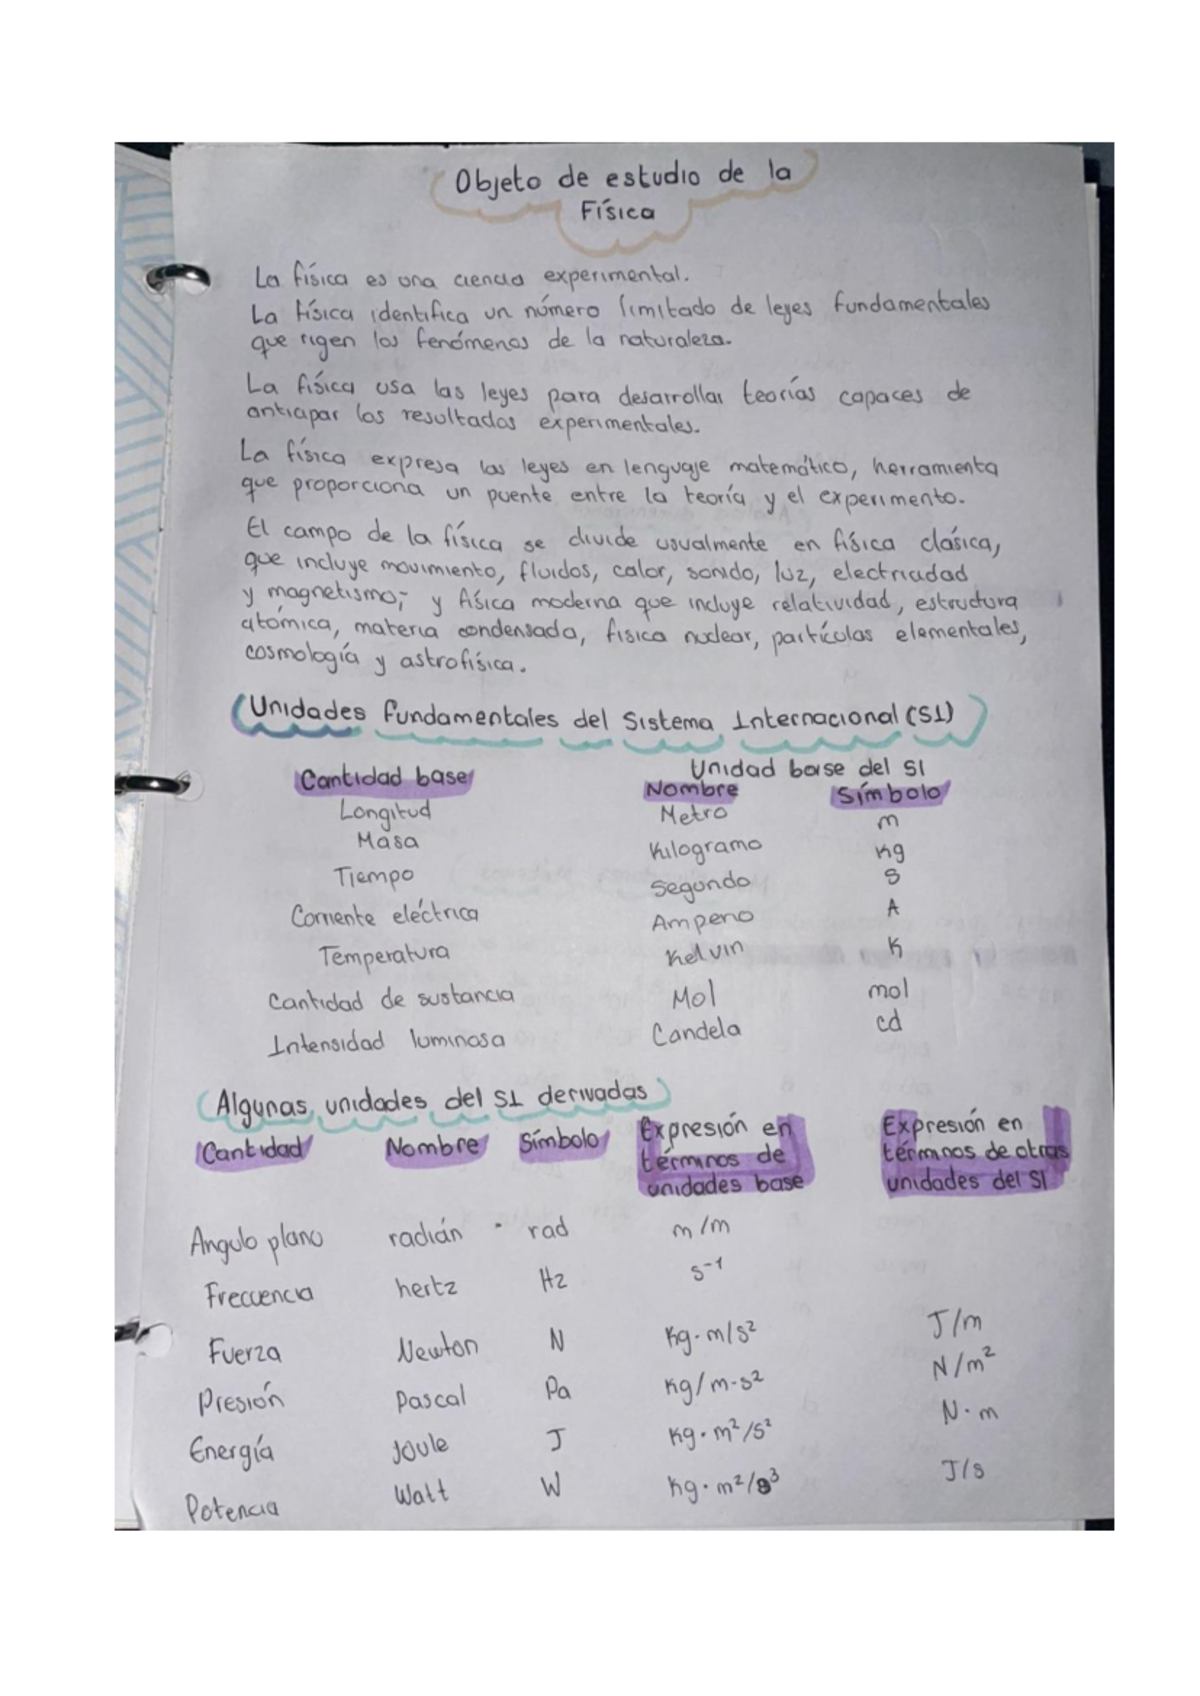 Objeto de estudio de la
Física
La física es una ciencia experimental.
La física identifica un número limitado de leyes fundamentales
que rigen los fenómenos de la naturaleza.
La física usa las leyes para desarrollar teorías capaces de
anticipar los resultados experimentales.
La física expresa las leyes en lenguaje matemático, herramienta
que proporciona un puente entre la teoría y el experimento.
El campo de la física se divide usualmente en física clásica,
que incluye movimiento, fluidos, calor, sonido, luz, electricidad
y magnetismo; y física moderna que incluye relatividad, estructura
atómica, materia condensada, fisica nuclear, partículas elementales,
cosmología y astrofísica.
Unidades fundamentales del Sistema Internacional (SI)
Cantidad base Unidad base del SI
Nombre Símbolo
Longitud Metro m
Masa Kilogramo kg
Tiempo Segundo s
Corriente eléctrica Amperio A
Temperatura Kelvin K
Cantidad de sustancia Mol mol
Intensidad luminosa Candela cd
Algunas unidades del SI derivadas
Cantidad Nombre Símbolo Expresión en términos de unidades base Expresión en términos de otras unidades del SI
Angulo plano radián rad m/m
Frecuencia hertz Hz s⁻¹
Fuerza Newton N Kg·m/s² J/m
Presión Pascal Pa Kg/m·s² N/m²
Energía Joule J Kg·m²/s² N·m
Potencia Watt W Kg·m²/s³ J/s